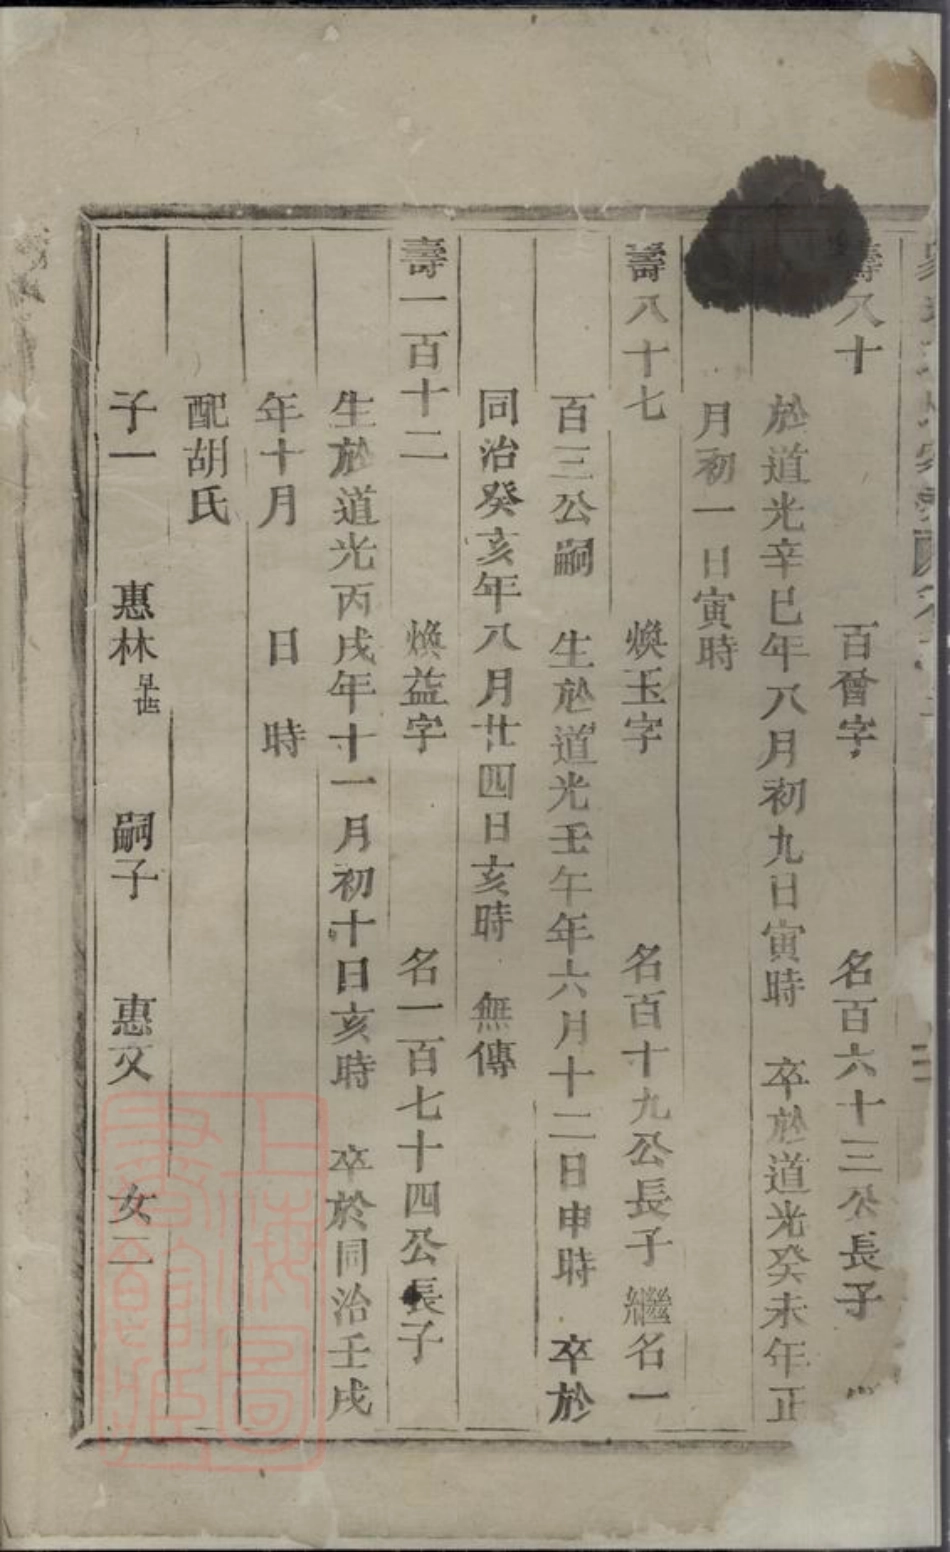 壽八十 百晉字 名百六十三公長子
於道光辛巳年八月初九日寅時 卒於道光癸未年正
月初一日寅時
壽八十七 煥玉字 名百十九公長子繼名一
百三公嗣 生於道光壬午年六月十二日申時 卒於
同治癸亥年八月廿四日亥時 無傳
壽一百十二 煥益字 名一百七十四公長子
生於道光丙戌年十一月初十日亥時 卒於同治壬戌
年十月 日 時
配胡氏
子一 惠林早世 嗣子 惠文 女二
上海圖書館藏